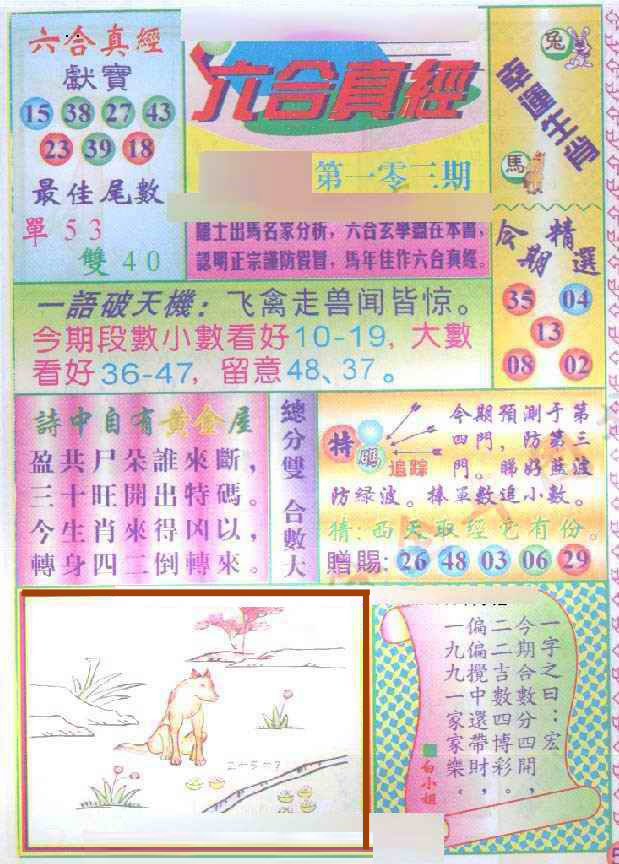 六合真經
獻寶
15 38 27 43
23 39 18
最佳尾數
單 5 3
雙 4 0
六合真經
第一零三期
隱士出馬名家分析，六合玄學盡在本書，
認明正宗謹防假冒，馬年佳作六合真經。
兔
幸運生肖
馬
今期精選
35 04
13
08 02
一語破天機：飞禽走兽闻皆惊。
今期段數小數看好10-19，大數
看好36-47，留意48、37。
詩中自有黃金屋
盈共尸朵誰來斷，
三十旺開出特碼。
今生肖來得凶以，
轉身四二倒轉來。
總分雙 合數大
特碼
追踪
今期預測于第
四門，防第三
門。睇好藍波
防绿波。捧單數追小數。
猜：西天取經它有份。
贈賜：26 48 03 06 29
二一5一?
一字之曰：宏
今期合數分四開，
二二吉數四博彩。
偏偏攪中還帶財，
一九九一家家樂。
白小姐